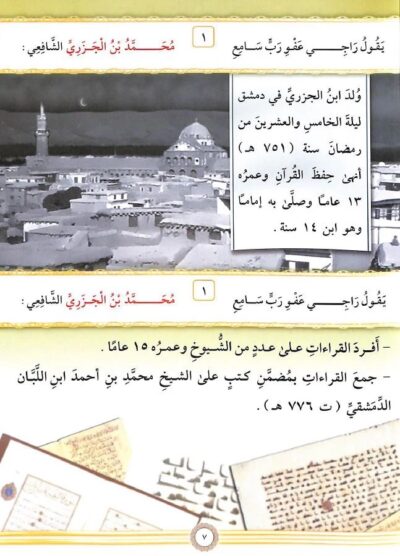 ١
يَقُولُ رَاجِـــي عَفْوِ رَبٍّ سَـامِعِ مُحَـــمَّـدُ بْنُ الْـجَزَرِيِّ الشَّافِعِي :
وُلدَ ابنُ الجزريِّ في دمشق
ليلةَ الخامسِ والعشرينَ من
رمضانَ سنة (٧٥١ هـ)
أنهىٰ حِفظَ القُرآنِ وعمرُه
١٣ عامـًا وصلَّىٰ به إمامـًا
وهو ابن ١٤ سنة .
١
يَقُولُ رَاجِـــي عَفْوِ رَبٍّ سَـامِعِ مُحَـــمَّـدُ بْنُ الْـجَزَرِيِّ الشَّافِعِي :
– أَفـردَ القراءاتِ علىٰ عـددٍ من الشُّـيوخِ وعمـرُه ١٥ عامًـا .
– جمعَ القراءاتِ بمُضمَّنِ كتـبٍ علىٰ الشـيخِ محمَّـدِ بنِ أحمدَ ابنِ اللَّبَّان
الدِّمَشقيِّ (ت ٧٧٦ هـ) .
٧